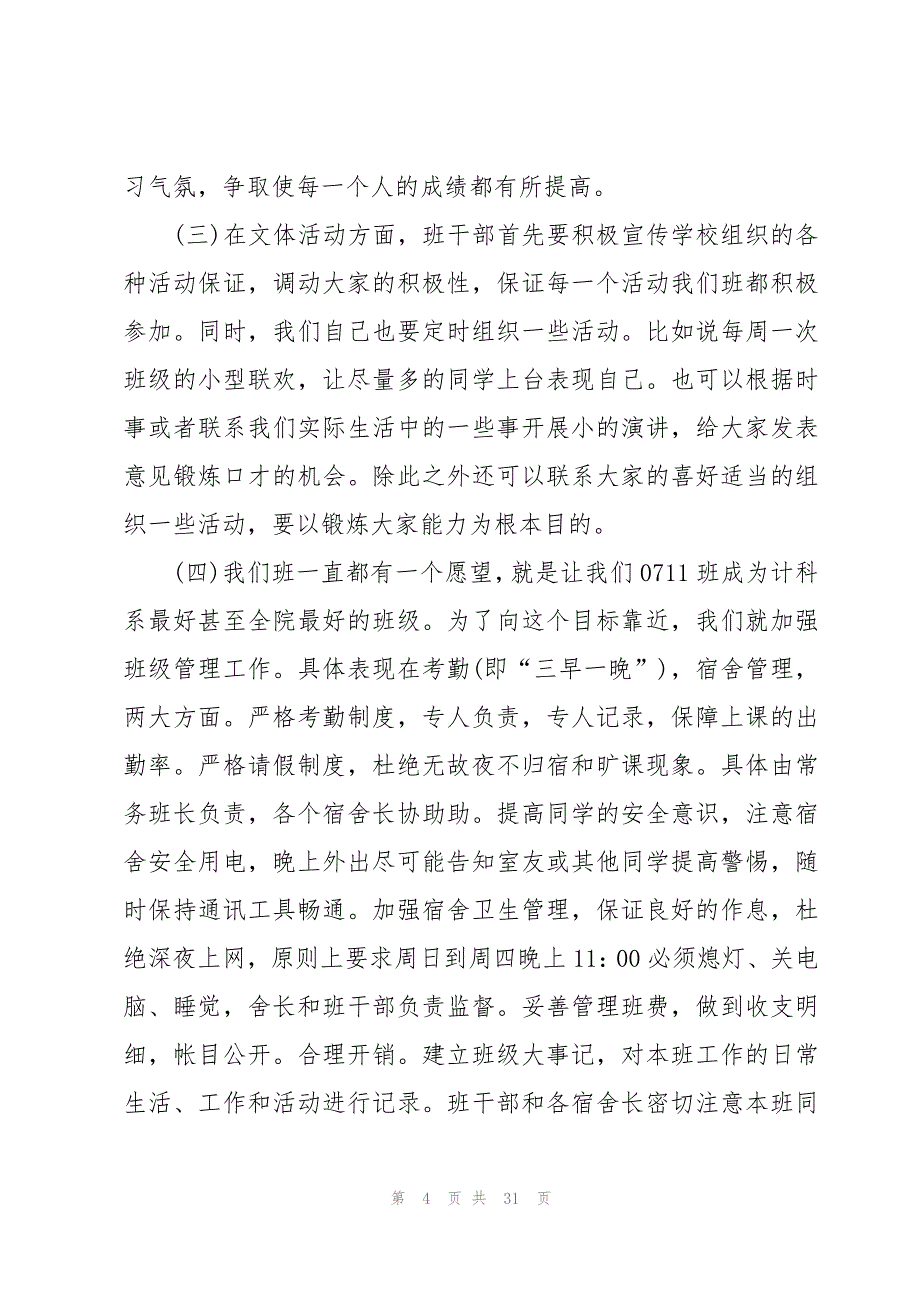 习气氛，争取使每一个人的成绩都有所提高。
(三)在文体活动方面，班干部首先要积极宣传学校组织的各
种活动保证，调动大家的积极性，保证每一个活动我们班都积极
参加。同时，我们自己也要定时组织一些活动。比如说每周一次
班级的小型联欢，让尽量多的同学上台表现自己。也可以根据时
事或者联系我们实际生活中的一些事开展小的演讲，给大家发表
意见锻炼口才的机会。除此之外还可以联系大家的喜好适当的组
织一些活动，要以锻炼大家能力为根本目的。
(四)我们班一直都有一个愿望，就是让我们 0711 班成为计科
系最好甚至全院最好的班级。为了向这个目标靠近，我们就加强
班级管理工作。具体表现在考勤(即“三早一晚”)，宿舍管理，
两大方面。严格考勤制度，专人负责，专人记录，保障上课的出
勤率。严格请假制度，杜绝无故夜不归宿和旷课现象。具体由常
务班长负责，各个宿舍长协助助。提高同学的安全意识，注意宿
舍安全用电，晚上外出尽可能告知室友或其他同学提高警惕，随
时保持通讯工具畅通。加强宿舍卫生管理，保证良好的作息，杜
绝深夜上网，原则上要求周日到周四晚上 11：00 必须熄灯、关电
脑、睡觉，舍长和班干部负责监督。妥善管理班费，做到收支明
细，帐目公开。合理开销。建立班级大事记，对本班工作的日常
生活、工作和活动进行记录。班干部和各宿舍长密切注意本班同
第 4 页 共 31 页